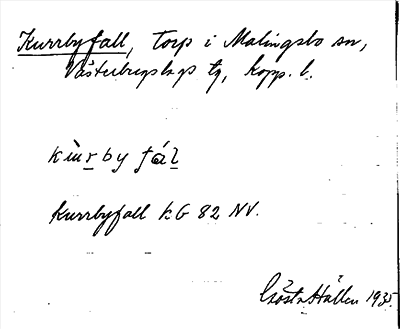 Kurrbyfall, Torp i Malingsbo sn,
Västerbergslags tg, Kopp. l.
kùrby fál
Kurrbyfall kG 82 NV.
Gösta Hállen 1935